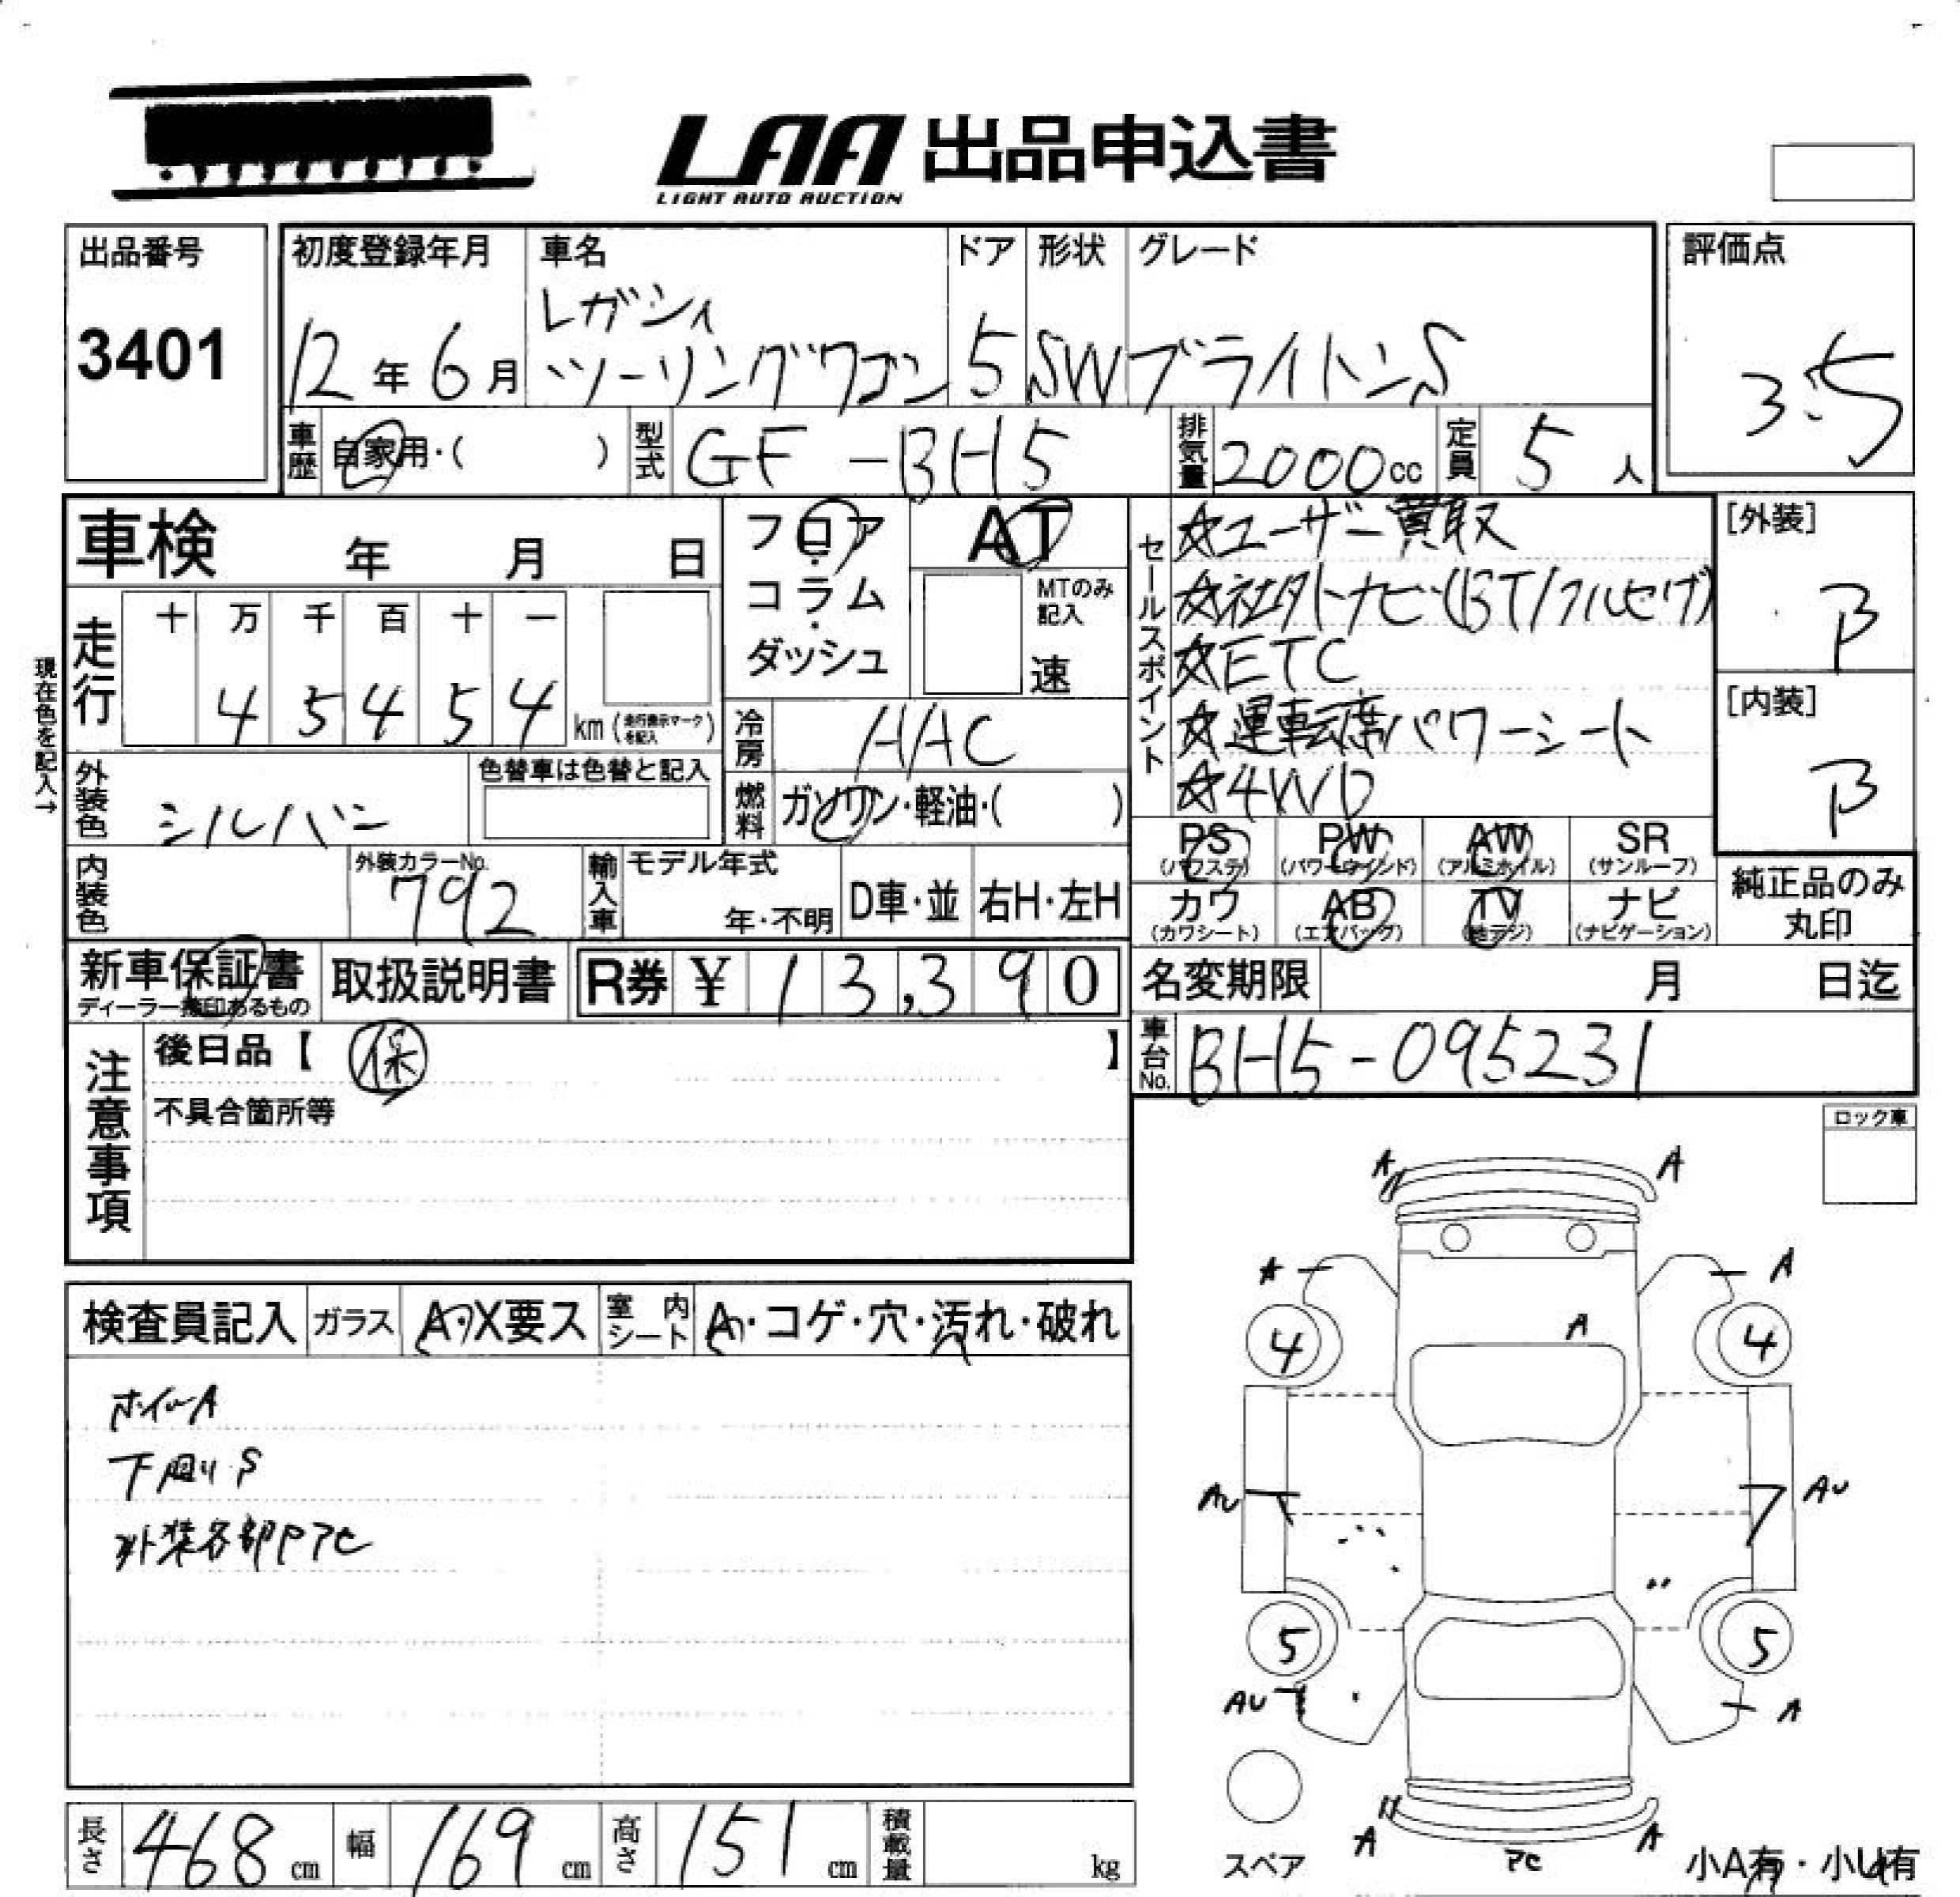 LAA 出品申込書
LIGHT AUTO AUCTION
出品番号
3401
初度登録年月
12年6月
車名
レガシィ
ツーリングワゴン
ドア
5
形状
SW
グレード
ブライトンS
評価点
3.5
車歴 自家用・( )
型式 GF-BH5
排気量 2000cc
定員 5人
車検 年 月 日
フロア・コラム・ダッシュ
AT
MTのみ記入
速
セールスポイント
☆ユーザー買取
☆社外ナビ(BT/フルセグ)
☆ETC
☆運転席パワーシート
☆4WD
[外装]
B
[内装]
B
現在色を記入→
走行
十 万 千 百 十 一
4 5 4 5 4 km (走行表示マークを記入)
冷房 AAC
外装色 シルバー
色替車は色替と記入
燃料 ガソリン・軽油・( )
PS (パワステ)
PW (パワーウインド)
AW (アルミホイル)
SR (サンルーフ)
カワ (カワシート)
AB (エアバッグ)
TV (地デジ)
ナビ (ナビゲーション)
純正品のみ丸印
内装色
外装カラーNo.
792
輸入車
モデル年式
年・不明
D車・並
右H・左H
新車保証書
ディーラー捺印あるもの
取扱説明書
R券 ¥ 13,390
名変期限 月 日迄
注意事項
後日品【 保 】
不具合箇所等
車台No. BH5-095231
ロック車
検査員記入
ガラス A・X要ス
室内シート A・コゲ・穴・汚れ・破れ
ホイールA
下廻りS
外装各部PアC
A A
A A
A
4 4
AU AU
5 5
AU A
A A
アC
スペア
小A有・小U有
長さ 468 cm
幅 169 cm
高さ 151 cm
積載量 kg